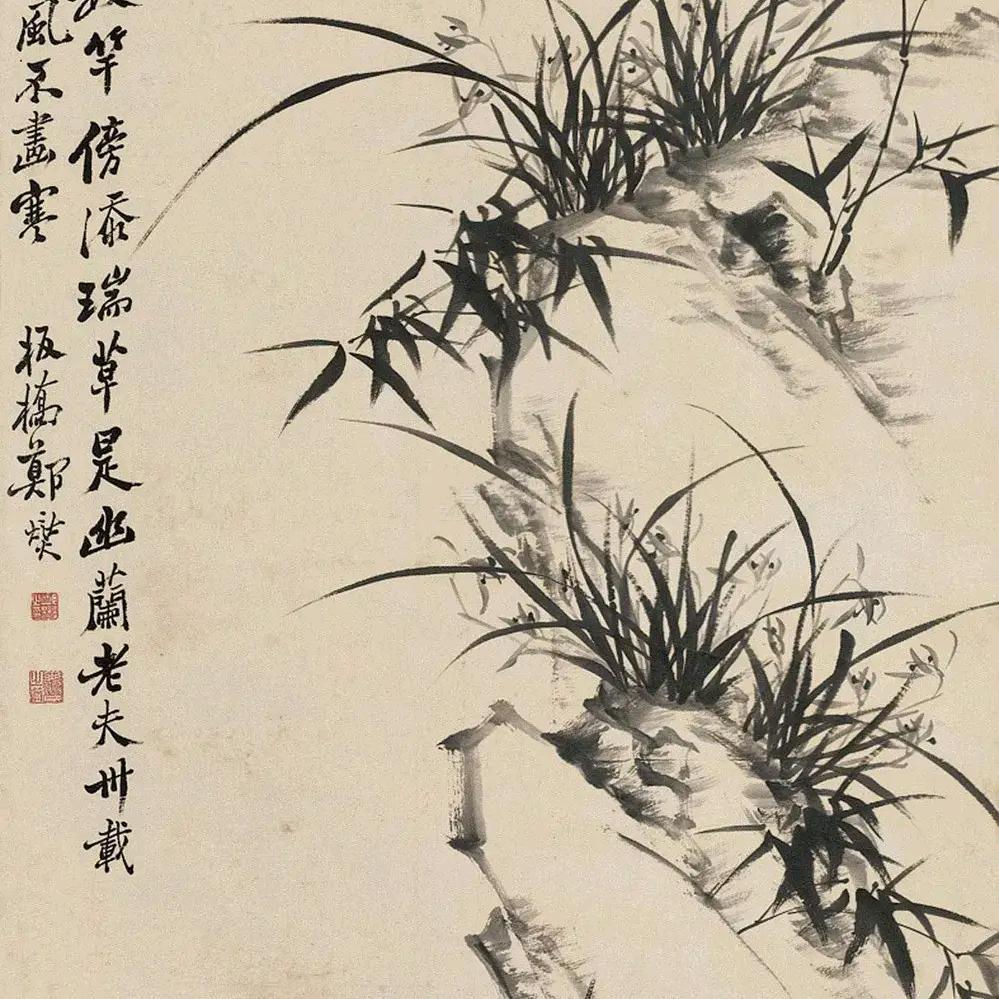 竿傍添瑞草是幽蘭老夫卅載
風不畫寒 板橋鄭燮